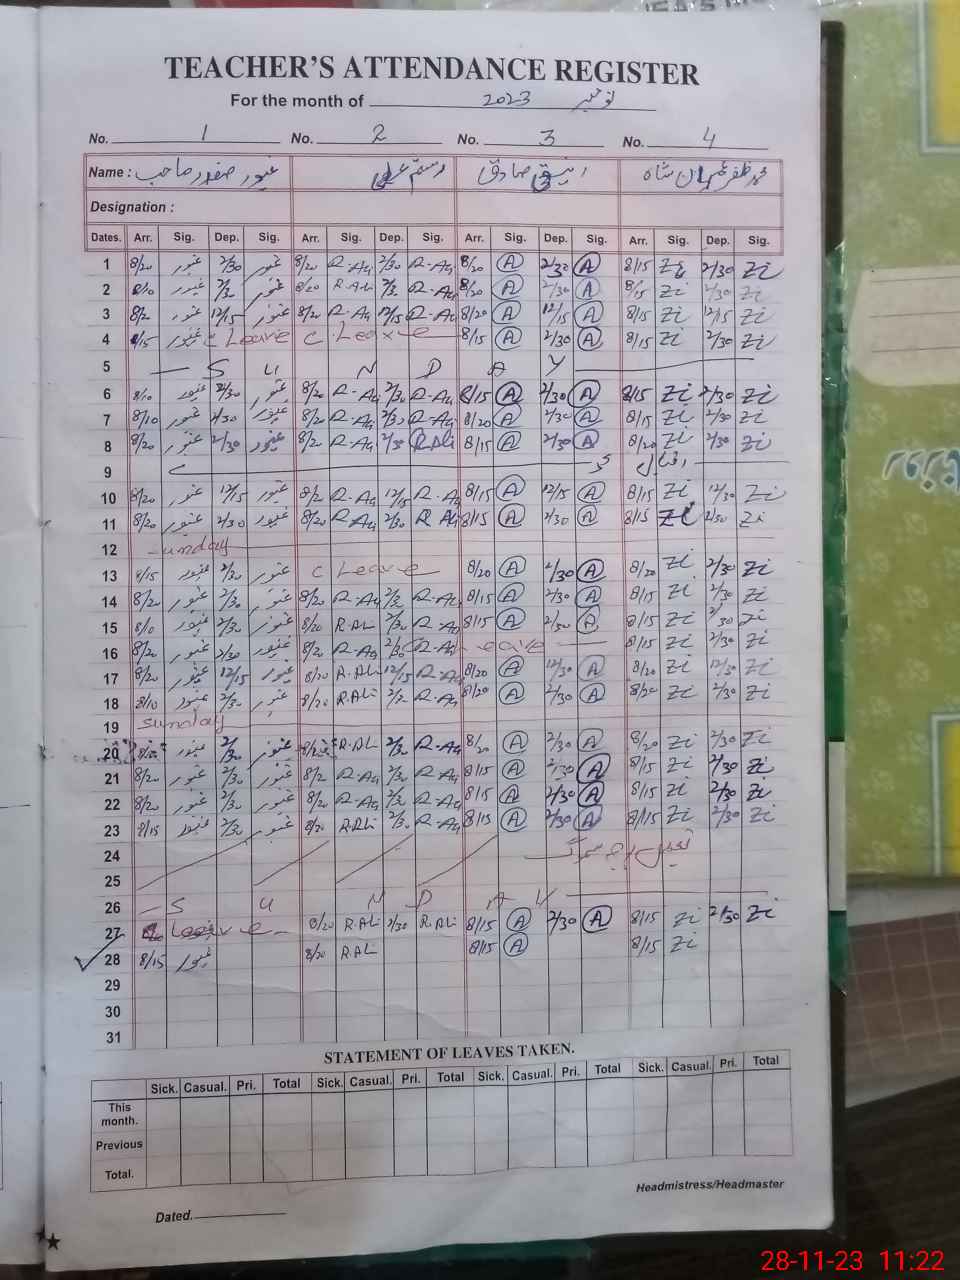 TEACHER'S ATTENDANCE REGISTER
For the month of نومبر 2023
No. 1 No. 2 No. 3 No. 4
Name : غیور صفدر صاحب رستم علی صادق محمد ظفر شاہ
Designation :
Dates. Arr. Sig. Dep. Sig. Arr. Sig. Dep. Sig. Arr. Sig. Dep. Sig. Arr. Sig. Dep. Sig.
1 8/20 غیور 2/30 غیور 8/20 R-Ali 2/30 R-Ali 8/20 A 2/30 A 8/15 Zi 2/30 Zi
2 8/10 غیور 2/30 غیور 8/20 R-Ali 2/30 R-Ali 8/20 A 2/30 A 8/15 Zi 2/30 Zi
3 8/20 غیور 12/15 غیور 8/20 R-Ali 12/15 R-Ali 8/20 A 12/15 A 8/15 Zi 12/15 Zi
4 8/15 غیور c Leave C. Leave 8/15 A 2/30 A 8/15 Zi 2/30 Zi
5 S U N D A Y
6 8/10 غیور 2/30 غیور 8/20 R-Ali 2/30 R-Ali 8/15 A 2/30 A 8/15 Zi 2/30 Zi
7 8/10 غیور 2/30 غیور 8/20 R-Ali 2/30 R-Ali 8/20 A 2/30 A 8/15 Zi 2/30 Zi
8 8/20 غیور 2/30 غیور 8/20 R-Ali 2/30 R.Ali 8/15 A 2/30 A 8/20 Zi 2/30 Zi
9 اقبال ڈے
10 8/20 غیور 12/15 غیور 8/20 R-Ali 12/15 R-Ali 8/15 A 12/15 A 8/15 Zi 12/30 Zi
11 8/20 غیور 2/30 غیور 8/20 R-Ali 2/30 R Ali 8/15 A 2/30 A 8/15 Zi 2/30 Zi
12 Sunday
13 8/15 غیور 2/30 غیور C Leave 8/20 A 2/30 A 8/20 Zi 2/30 Zi
14 8/20 غیور 2/30 غیور 8/20 R-Ali 2/30 R-Ali 8/15 A 2/30 A 8/15 Zi 2/30 Zi
15 8/10 غیور 2/30 غیور 8/20 R.Ali 2/30 R-Ali 8/15 A 2/30 A 8/15 Zi 2/30 Zi
16 8/20 غیور 2/30 غیور 8/20 R-Ali 2/30 R-Ali Leave 8/15 Zi 2/30 Zi
17 8/20 غیور 12/15 غیور 8/20 R.Ali 12/15 R-Ali 8/20 A 12/30 A 8/20 Zi 12/30 Zi
18 8/10 غیور 2/30 غیور 8/20 R.Ali 2/30 R-Ali 8/20 A 2/30 A 8/20 Zi 2/30 Zi
19 Sunday
20 غیور 2/30 غیور R.Ali 2/30 R-Ali 8/20 A 2/30 A 8/20 Zi 2/30 Zi
21 8/20 غیور 2/30 غیور 8/20 R-Ali 2/30 R-Ali 8/15 A 2/30 A 8/15 Zi 2/30 Zi
22 8/20 غیور 2/30 غیور 8/20 R-Ali 2/30 R-Ali 8/15 A 2/30 A 8/15 Zi 2/30 Zi
23 8/15 غیور 2/30 غیور 8/20 R.Ali 2/30 R-Ali 8/15 A 2/30 A 8/15 Zi 2/30 Zi
24
25
26 S U N D A Y
27 Leave 8/20 R.Ali 2/30 R.Ali 8/15 A 2/30 A 8/15 Zi 2/30 Zi
28 8/15 غیور 8/20 R.Ali 8/15 A 8/15 Zi
29
30
31
STATEMENT OF LEAVES TAKEN.
Sick. Casual. Pri. Total Sick. Casual. Pri. Total Sick. Casual. Pri. Total Sick. Casual. Pri. Total
This month.
Previous
Total.
Headmistress/Headmaster
Dated.
28-11-23 11:22